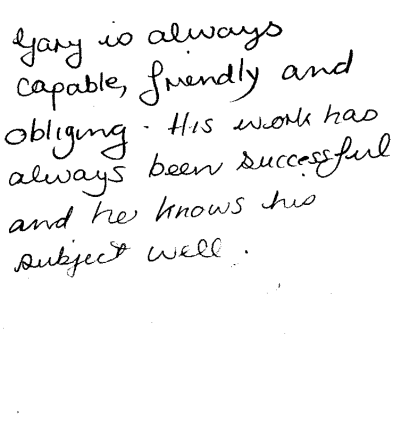 Gary is always
capable, friendly and
obliging. His work has
always been successful
and he knows his
subject well.